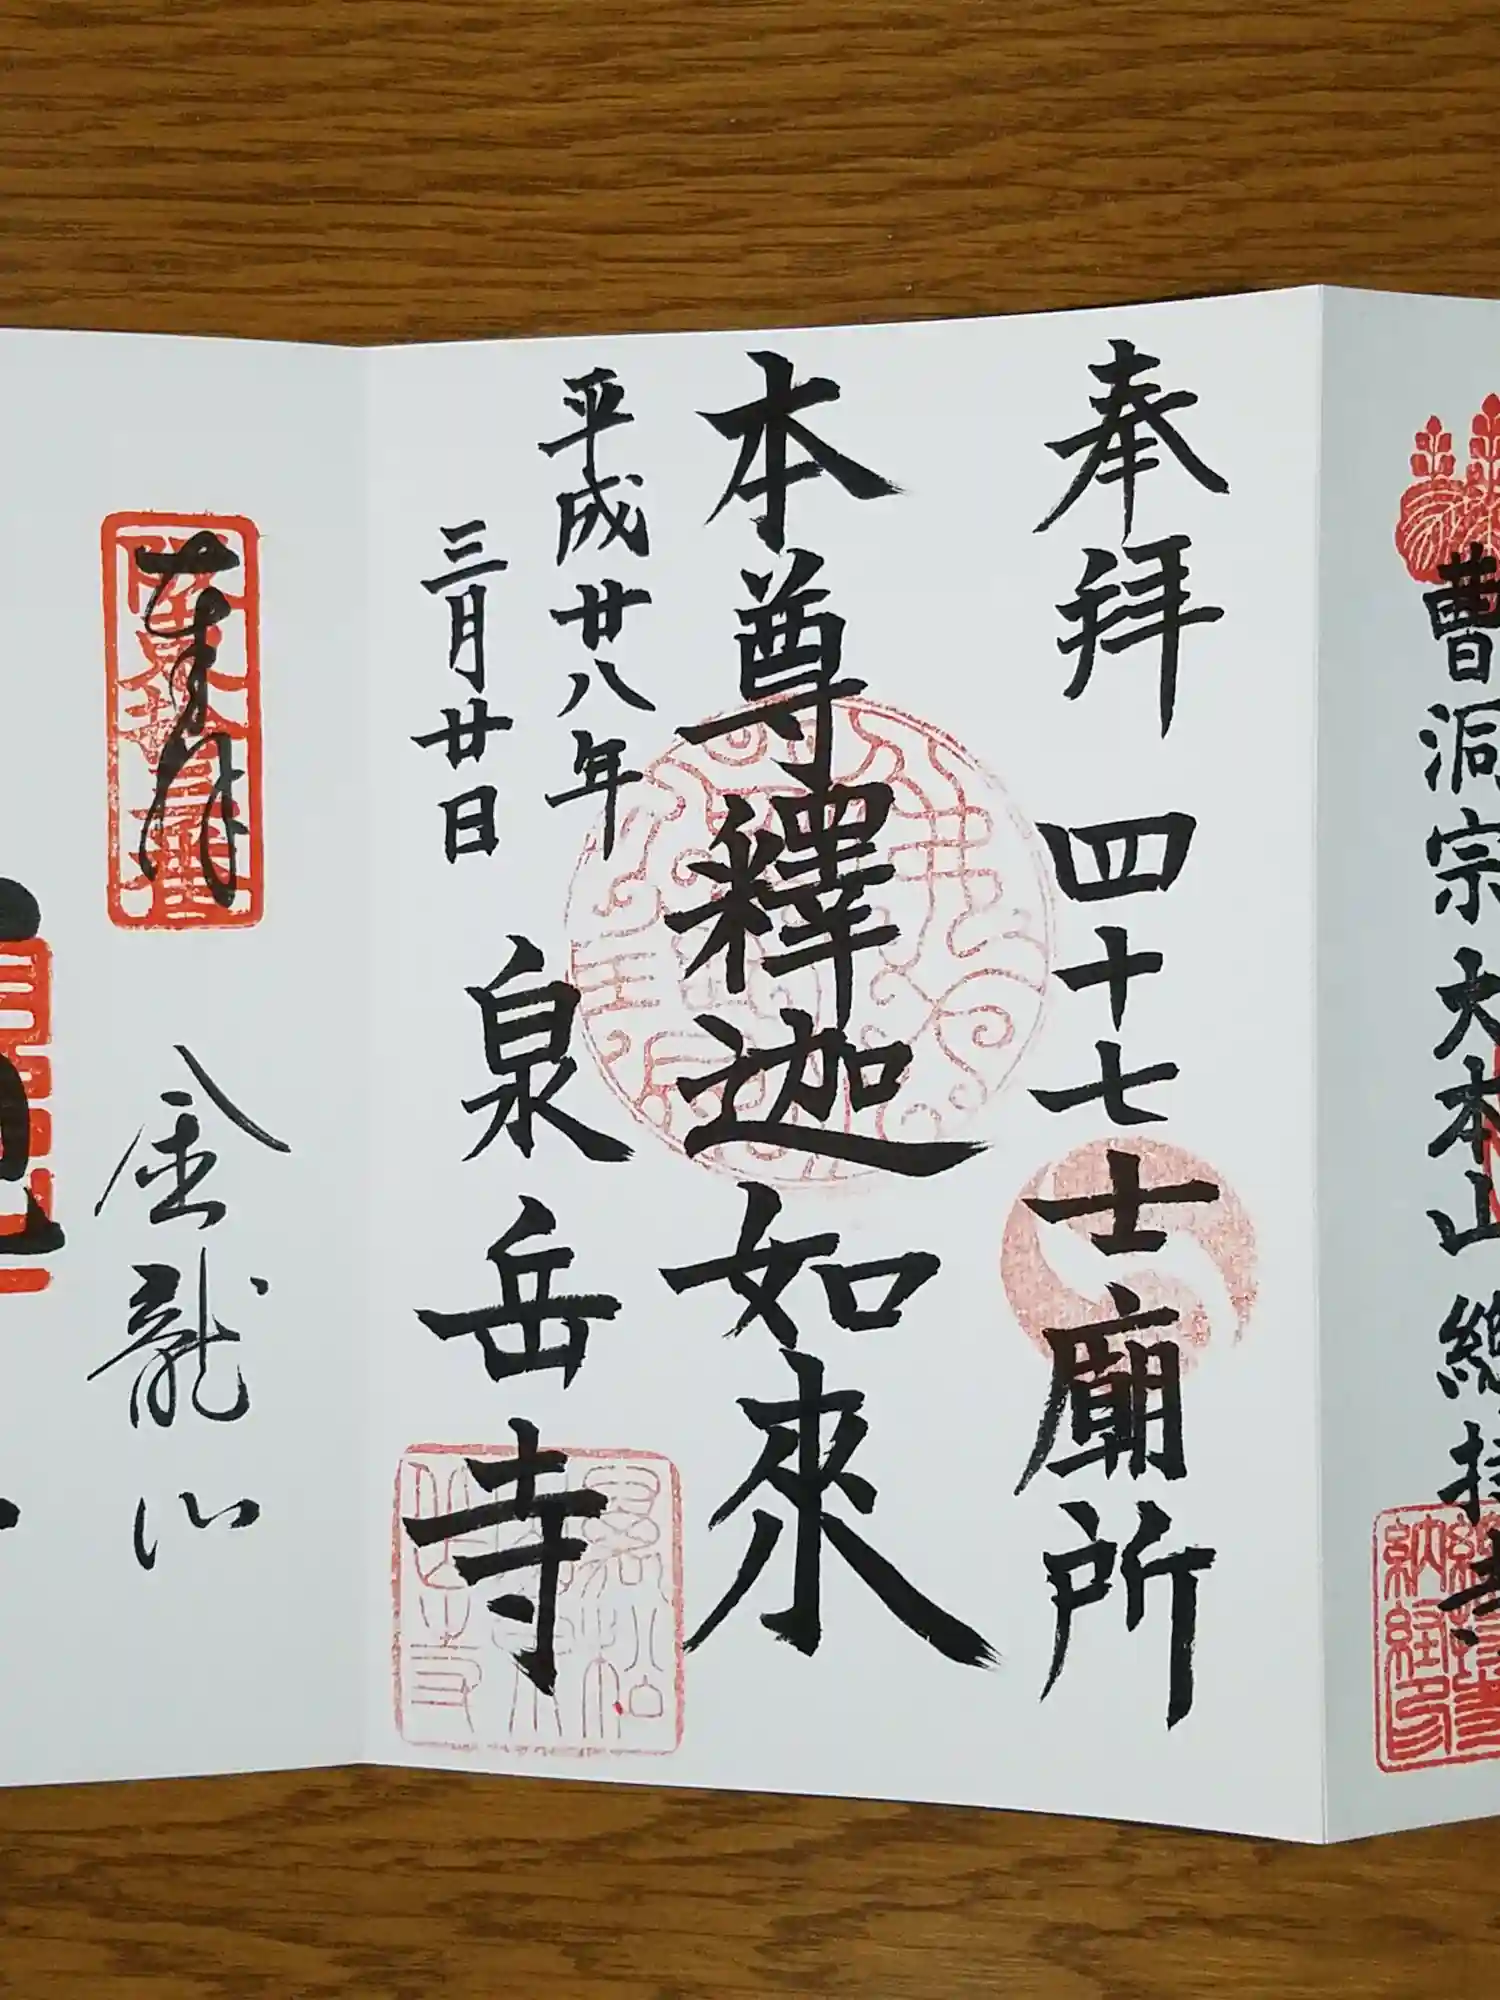 曹洞宗大本山總持寺
納経印
奉拜 四十七士廟所
本尊釋迦如來
平成廿八年
三月廿日
泉岳寺
奉拝
金龍山